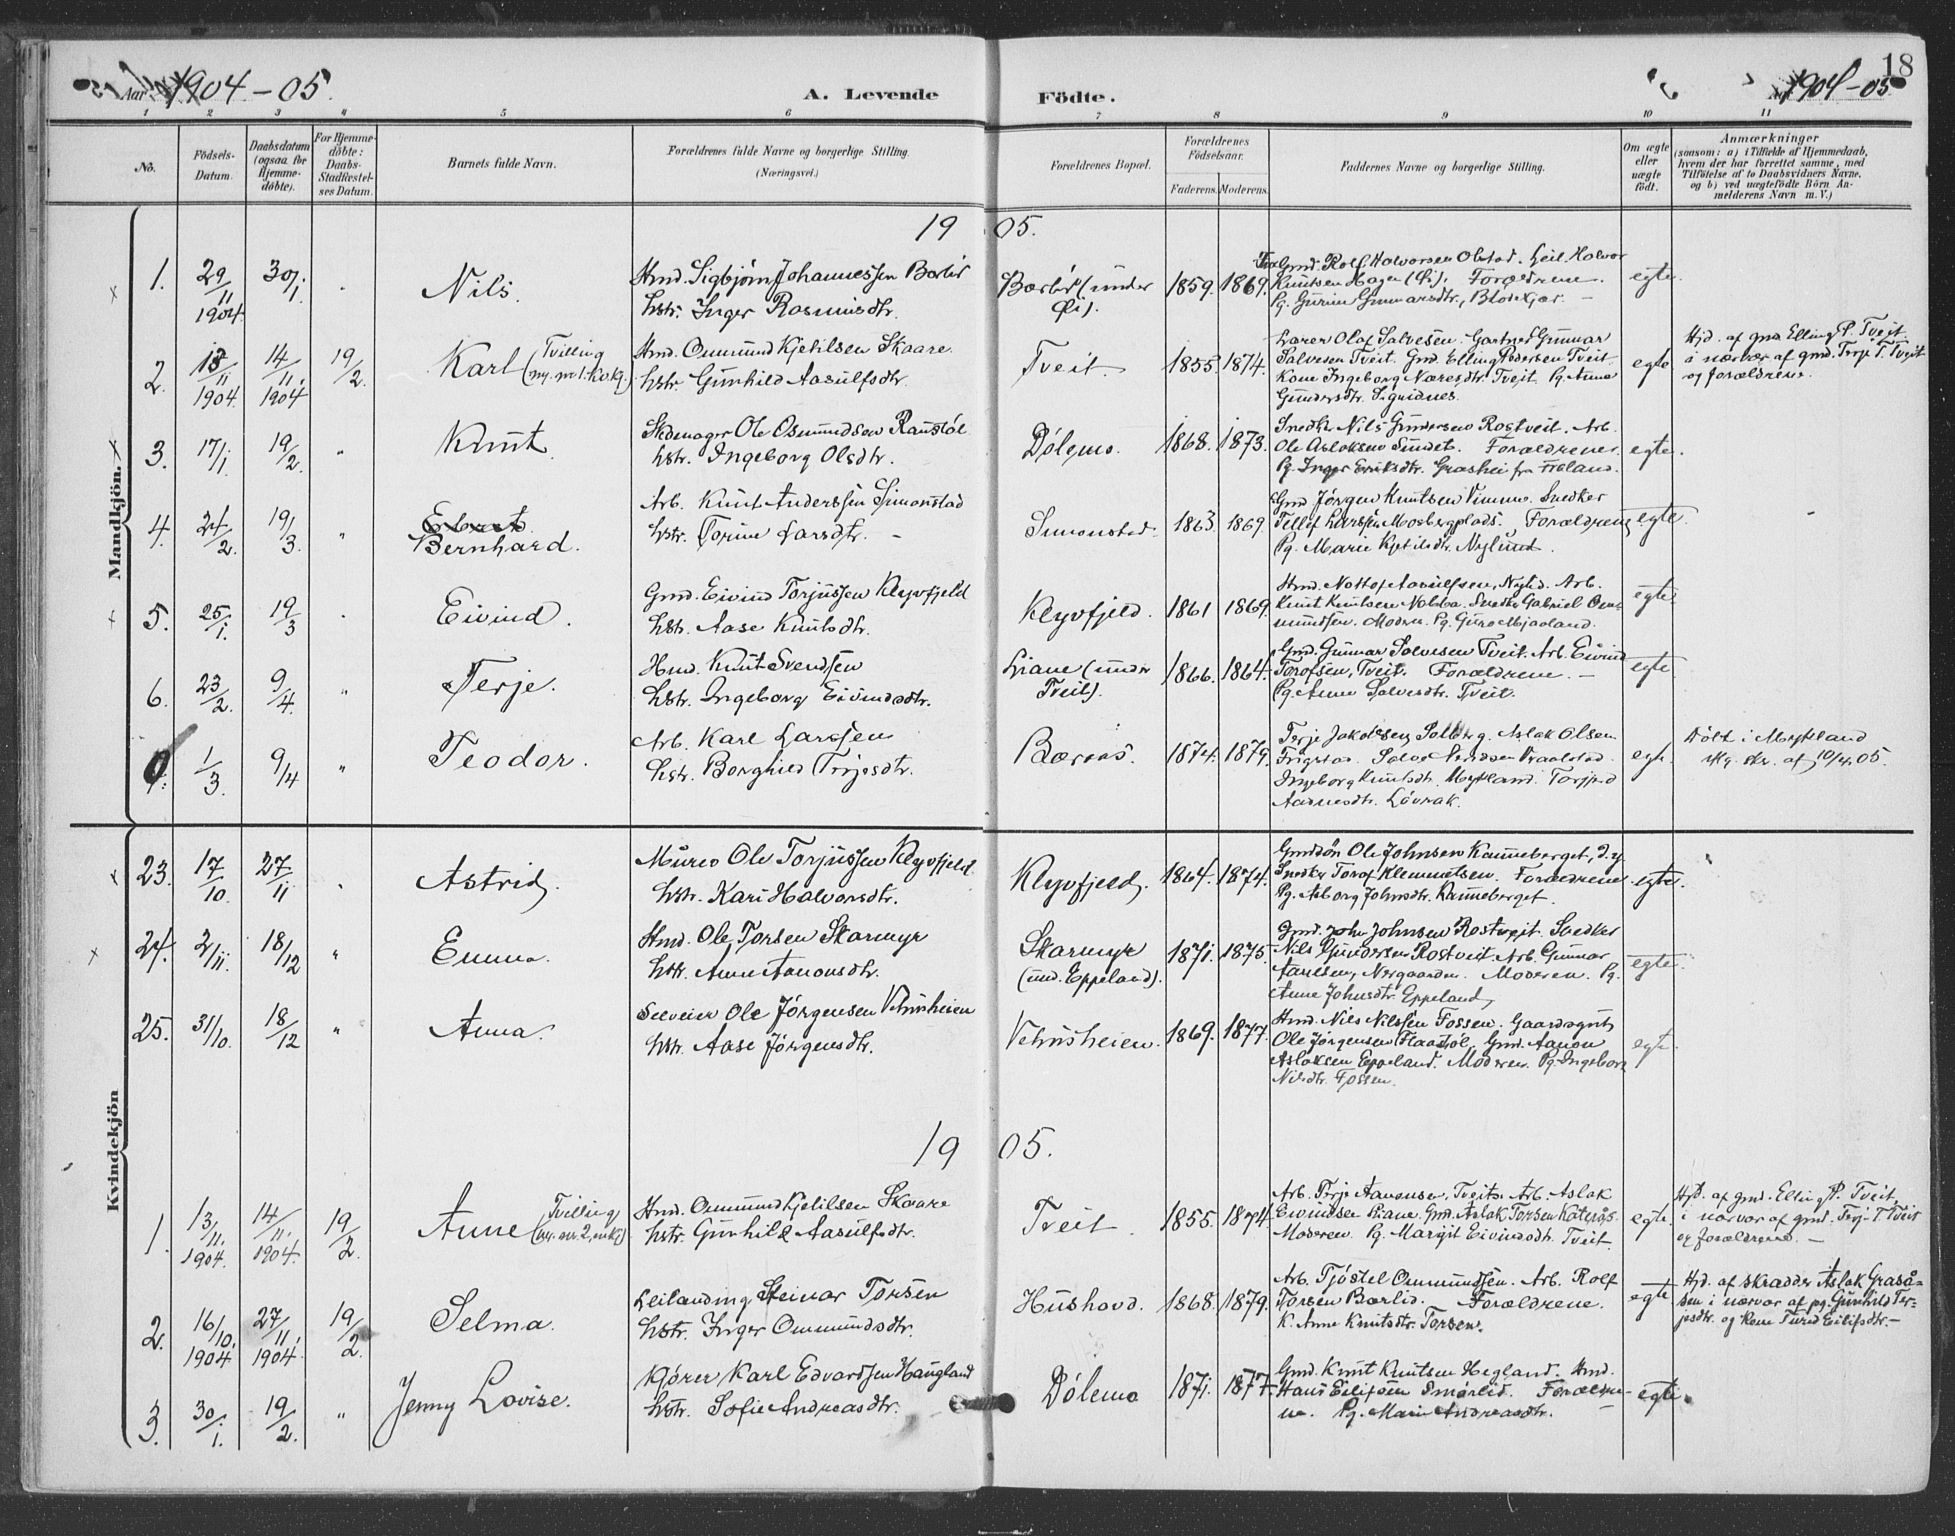 Aar 1904-05. A. Levende Fødte. 1904-05 18
1 2 3 " 5 6 7 8 9 10 11
No.
Födsels-
Datum.
Daabsdatum
(ogsaa for
Hjemme-
døbte).
For Hjemme-
döbte:
Daabs-
Stadfestel-
ses Datum.
Barnets fulde Navn.
Forældrenes fulde Navne og borgerlige Stilling.
(Næringsvei.)
Forældrenes Bopæl.
Forældrenes
Födselsaar.
Faderens. Moderens.
Faddernes Navne og borgerlige Stilling.
Om ægte
eller
uægte
født.
Anmærkninger
(saasom: a) i Tilfælde af Hjemmedaab,
hvem der har forrettet samme, med
Tilföielse af to Daabsvidners Navne.
og b) ved uægtefødte Börn An-
melderens Navn m. V.)
Mandkjön.
19 05.
1. 29/11 1904. 30/1. Nils.
Hmd. Sigbjørn Johannessen
hstr. Inger Rasmusdtr.
(under
Øi).
1859. 1869.
Gmd. Rolf Halvorsen Olstad. Leil. Halvor
Knutsen Hagen (Øi). Forældrene. -
Pg. Gurine Gunnarsdtr.
egte.
2. 13/11 1904. 14/11. 1904 19/2. Karl (Tvilling
Hmd. Ommund Kjetilsen Skaare.
hstr. Gunhild Aasulfsdtr.
Tveit 1855. 1874.
Lærer Olaf Salvesen. Gartner Gunnar
Salvesen Tveit. Gmd. Elling Pedersen Tveit
Kone Ingeborg Tveit. Pg. Anne
Gundersdtr. Sigridnes.
egte
Hjd. af gmd. Elling P. Tveit
i nærvær af gmd. Terje T. Tveit
og forældrene.
3. 17/1. 19/2. " Knut.
Skomager Ole Osmundsen
hstr. Ingeborg Olsdtr.
Dølemo. 1868. 1873.
Snedker Nils Gundersen Rostveit. Arb.
Ole Aslaksen Sundet. Forældrene.
Pg. Inger Eriksdtr. Grashei fra
egte.
4. 24/2. 19/3. " Bernhard.
Arb. Knut Anderssen Simonstad
hstr. Torine Larsdtr. -
Simonstad. 1863 1869.
Gmd. Jørgen Knutsen Vimme. Snedker
Tellef Larssen Mosbergplads. Forældrene
Pg. Marie Kjetilsdtr. Nylund.
egte.
5. 25/1. 19/3 Eivind.
Gmd. Eivind Torjussen Klyvfjeld
hstr. Aase Knutsdtr.
Klyvfjeld. 1861 1869.
Hmd. Nottof Aasulfsen, Arb.
Knut Knutsen Snedker Gabriel Om-
mundsen. Moderen. Pg. Guro Mjaaland.
egte.
6. 23/2. 9/4. " Terje.
Hmd. Knut Svendsen
hstr. Ingeborg Eivindsdtr.
Liane (under
Tveit).
1866. 1864.
Gmd. Gunnar Salvesen Tveit. Arb. Eivind
Torofsen, Tveit. Forældrene. -
Pg. Anne Salvesdtr. Tveit.
egte.
0. 1/3. 9/4 " Teodor.
Arb. Karl Larssen
hstr. Borghild Terjesdtr.
1874. 1879
Terje Jakobsen Solberg. Aslak Olsen
Frigstad. Salve
Ingeborg Knutsdtr. Mykland.
Løvrak.
egte.
Døbt i Mykland
10/4. 05.
Kvindekjön
23. 17/10. 27/11 Astrid.
Murer Ole Torjussen Klyvfjeld.
hstr. Kari Halvorsdtr.
Klyvfjeld. 1864. 1874.
Gmdsøn Ole Johnsen Kanneberget, d.y.
Snedker Torof Klemmetsen. Forældrene
Pg. Asborg Johnsdtr. Kanneberget.
egte.
24. 2/11. 18/12 " Emma.
Hmd. Ole Torsen Skarmyr
hstr. Anne Aanonsdtr.
Skarmyr
(und. Eppeland).
1871. 1875.
Gmd. John Johnsen Rostveit. Snedker
Nils Gundersen Rostveit. Arb. Gunnar
Moderen. Pg.
Anne Johnsdtr. Eppeland,
egte.
25. 31/10. 18/12 " Anna.
Ole Jørgensen Vehusheien
hstr. Aase Jørgensdtr.
Vehusheien. 1869. 1877.
Hmd. Nils Nilssen Fossen. Gaardsgut
Ole Jørgensen Gmd. Aanon
Aslaksen Eppeland. Moderen. Pg. Ingeborg
Nilsdtr. Fossen.
egte.
19 05.
1. 13/11. 1904. 14/11. 1904. 19/2. Anne (Tvilling
Hmd. Ommund Kjetilsen Skaare
hstr. Gunhild Aasulfsdtr.
Tveit. 1855. 1874.
Arb. Terje Aanonsen, Tveit. Arb. Aslak
Eivindsen Liane. Gmd. Aslak Torsen
Moderen. Pg. Margit Eivindsdtr. Tveit.
egte.
Hjd. af gmd. Elling P. Tveit,
i nærvær af gmd. Terje T. Tveit
og forældrene. -
2. 16/10. 1904 27/11. 1904. 19/2. Selma.
Leilænding Steinar Torsen
hstr. Inger Ommundsdtr.
Hushovd. 1868. 1879.
Arb. Tjøstel Ommundsen. Arb. Rolf
Torsen Forældrene.
K. Anne Knutsdtr. Torsen.
egte
Hjd. af skrædder Aslak Graså-
sen i nærvær af pg. Gunhild Ter-
jesdtr. og Kone Turid Eilifsdtr. -
3. 30/1. 19/2. " Jenny Lovise.
Kjører Karl Edvardsen Haugland
hstr. Sofie Andreasdtr.
Dølemo 1871. 1877.
Gmd. Knut Knutsen Hegland. Hmd.
Hans Eilifsen Smørlid. Forældre-
ne. Pg. Marie Andreasdtr.
egte.